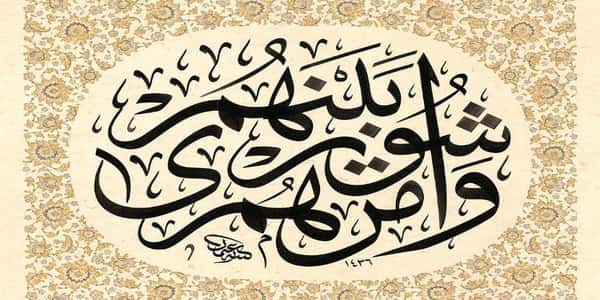 وَأمرُهُمْ شُورَىٰ بَيْنَهُمْ
١٤٣٦